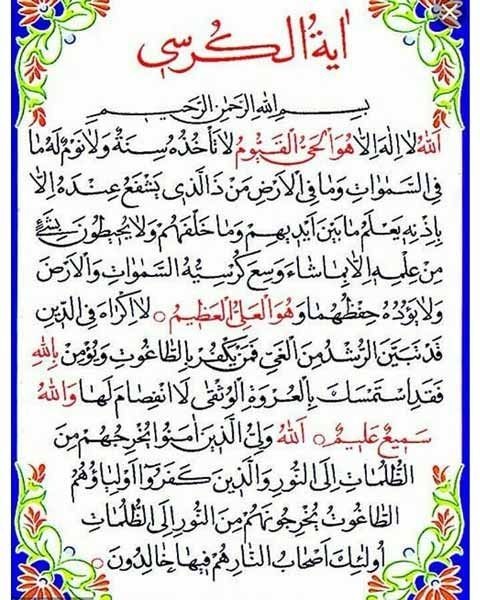 اٰيةُ الْكُرسي
بِسْمِ اللّٰهِ الرَّحْمٰنِ الرَّحيمِ
اَللّٰهُ لَا اِلٰهَ اِلَّا هُوَ الْحَيُّ الْقَيُّومُ لَا تَأْخُذُهُ سِنَةٌ وَلَا نَوْمٌ لَهُ مَا
فِي السَّمٰوَاتِ وَمَا فِي الْاَرْضِ مَنْ ذَا الَّذي يَشْفَعُ عِنْدَهُ اِلَّا
بِاِذْنِهِ يَعْلَمُ مَا بَيْنَ اَيْديهِمْ وَمَا خَلْفَهُمْ وَلَا يُحيطُونَ بِشَيْءٍ
مِنْ عِلْمِهِ اِلَّا بِمَا شَاءَ وَسِعَ كُرْسِيُّهُ السَّمٰوَاتِ وَالْاَرْضَ
وَلَا يَؤُدُهُ حِفْظُهُمَا وَهُوَ الْعَلِيُّ الْعَظيمُ ○ لَا اِكْرَاهَ فِي الدّينِ
قَدْ تَبَيَّنَ الرُّشْدُ مِنَ الْغَيِّ فَمَنْ يَكْفُرْ بِالطَّاغُوتِ وَيُؤْمِنْ بِاللّٰهِ
فَقَدِ اسْتَمْسَكَ بِالْعُرْوَةِ الْوُثْقٰى لَا انْفِصَامَ لَهَا وَاللّٰهُ
سَميعٌ عَليمٌ ○ اَللّٰهُ وَلِيُّ الَّذينَ اٰمَنُوا يُخْرِجُهُمْ مِنَ
الظُّلُمَاتِ اِلَى النُّورِ وَالَّذينَ كَفَرُوا اَوْلِيَاؤُهُمُ
الطَّاغُوتُ يُخْرِجُونَهُمْ مِنَ النُّورِ اِلَى الظُّلُمَاتِ
اُولٰئِكَ اَصْحَابُ النَّارِ هُمْ فيهَا خَالِدُونَ ○